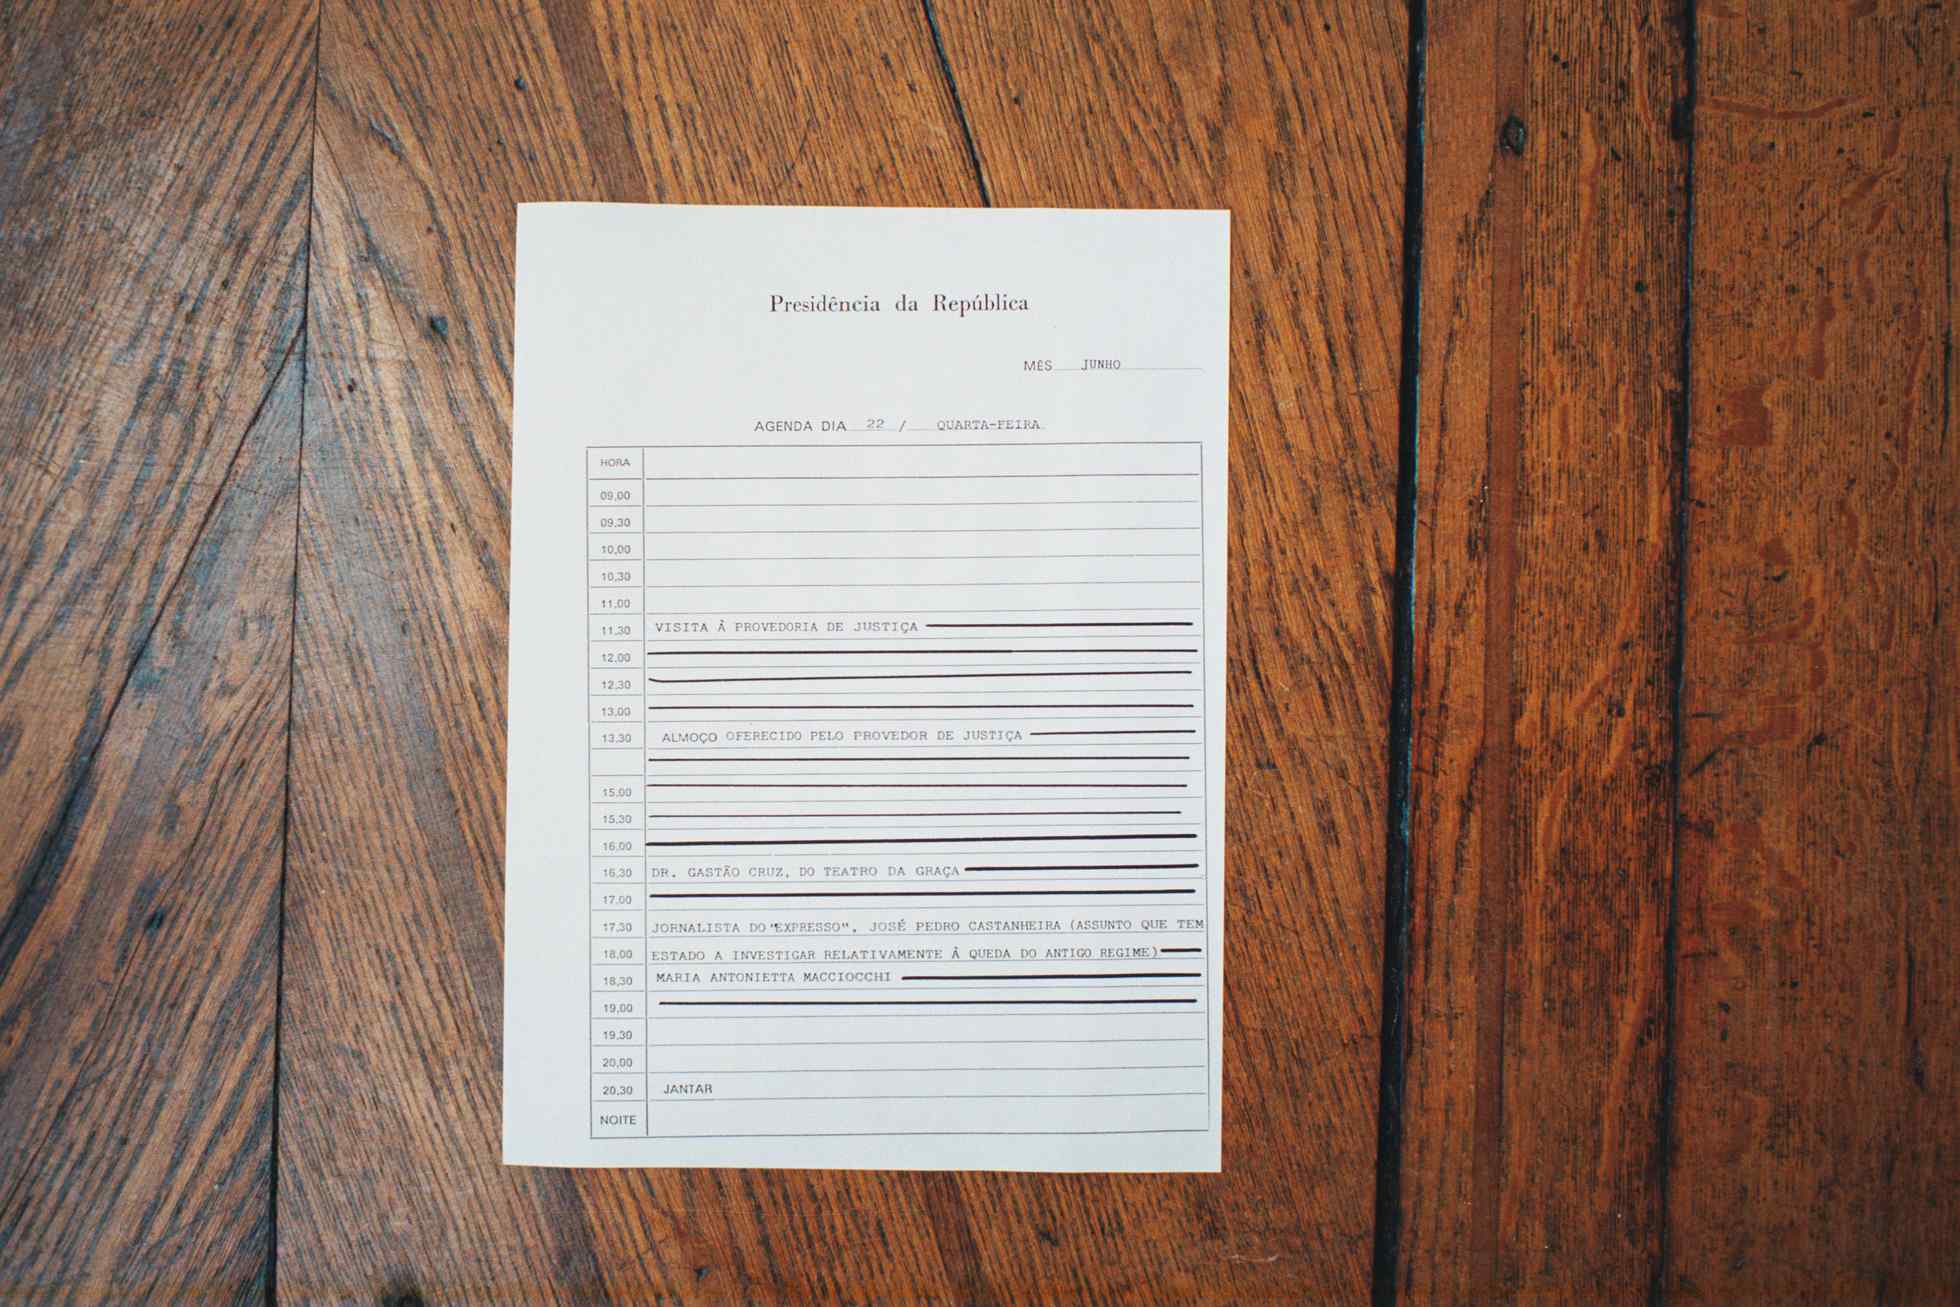 Presidência da República
MÊS JUNHO
AGENDA DIA 22 / QUARTA-FEIRA
HORA
09,00
09,30
10,00
10,30
11,00
11,30 VISITA À PROVEDORIA DE JUSTIÇA
12,00
12,30
13,00
13,30 ALMOÇO OFERECIDO PELO PROVEDOR DE JUSTIÇA
15,00
15,30
16,00
16,30 DR. GASTÃO CRUZ, DO TEATRO DA GRAÇA
17,00
17,30 JORNALISTA DO "EXPRESSO", JOSÉ PEDRO CASTANHEIRA (ASSUNTO QUE TEM
18,00 ESTADO A INVESTIGAR RELATIVAMENTE À QUEDA DO ANTIGO REGIME)
18,30 MARIA ANTONIETTA MACCIOCCHI
19,00
19,30
20,00
20,30 JANTAR
NOITE